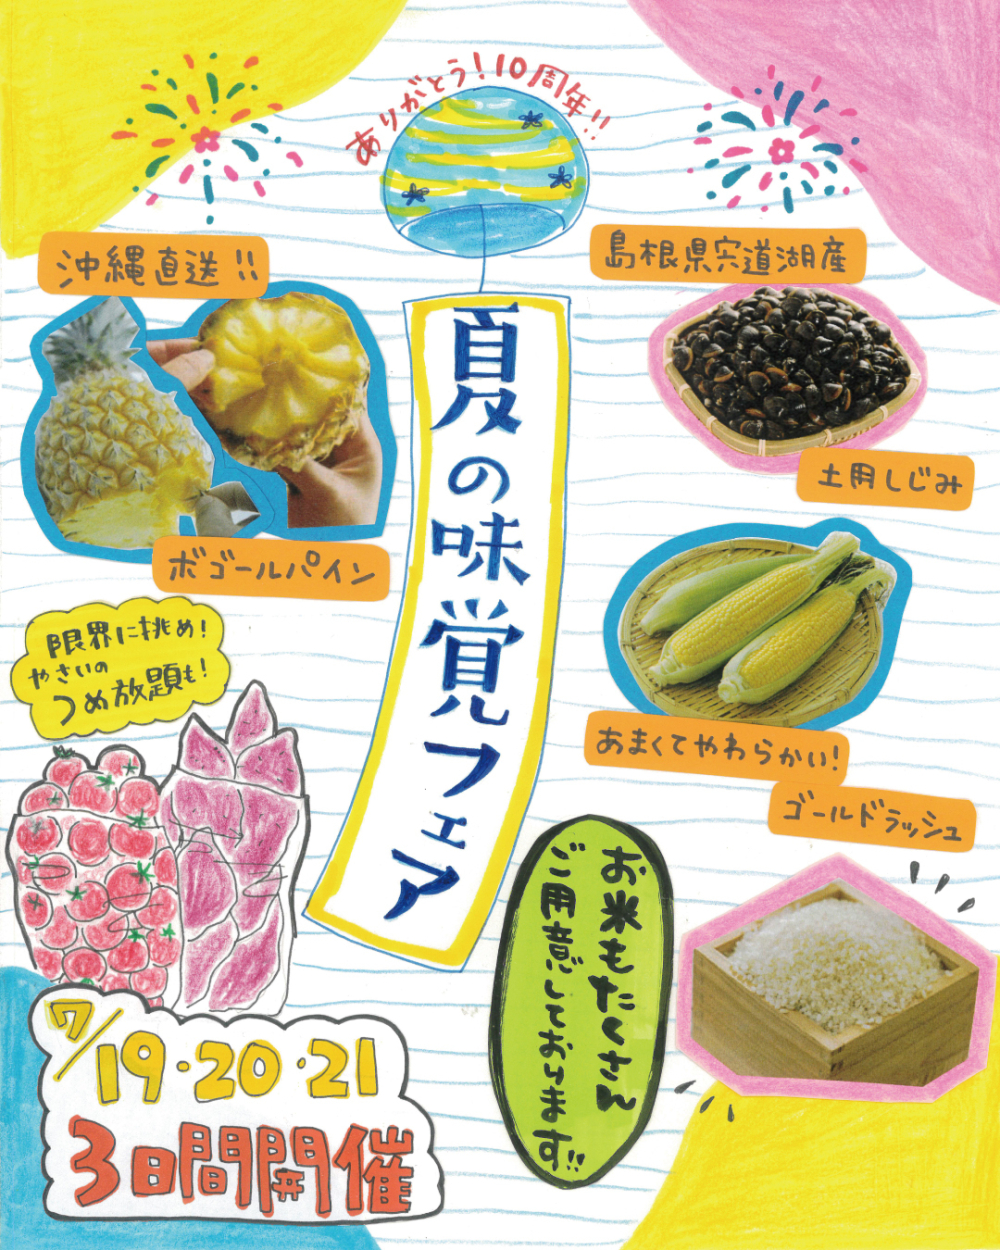 ありがとう!10周年!!
沖縄直送!!
島根県宍道湖産
夏の味覚フェア
土用しじみ
ボゴールパイン
限界に挑め!
やさいの
つめ放題も!
あまくてやわらかい!
ゴールドラッシュ
お米もたくさん
ご用意しております!!
7/19・20・21
3日間開催